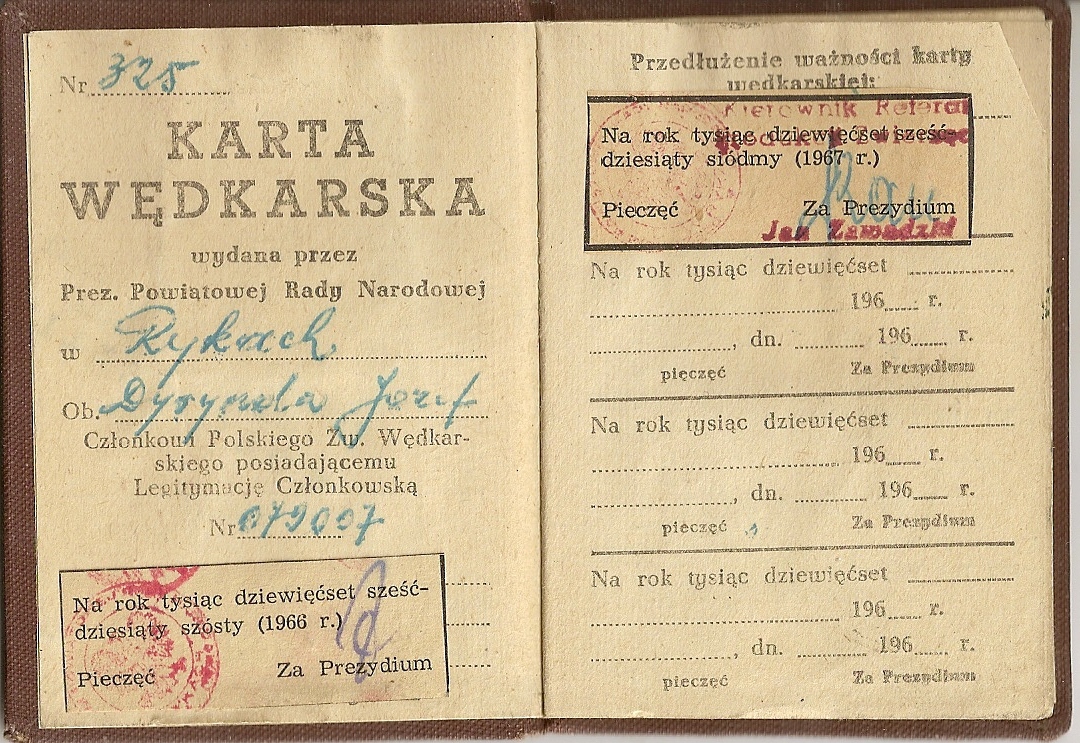 Nr 325
KARTA
WĘDKARSKA
wydana przez
Prez. Powiątowej Rady Narodowej
w Rykach
Ob. Józef
Członkowi Polskiego Zw. Wędkar-
skiego posiadającemu
Legitymację Członkowską
Nr 079007
Na rok tysiąc dziewięćset sześć-
dziesiąty szósty (1966 r.)
Pieczęć Za Prezydium
Przedłużenie ważności karty
wędkarskiej:
Kierownik Referat
Na rok tysiąc dziewięćset sześć-
dziesiąty siódmy (1967 r.)
Pieczęć Za Prezydium
Jan Zawadzki
Na rok tysiąc dziewięćset
196 r.
, dn. 196 r.
pieczęć Za Prezydium
Na rok tysiąc dziewięćset
196 r.
, dn. 196 r.
pieczęć Za Prezydium
Na rok tysiąc dziewięćset
196 r.
, dn. 196 r.
pieczęć Za Prezydium